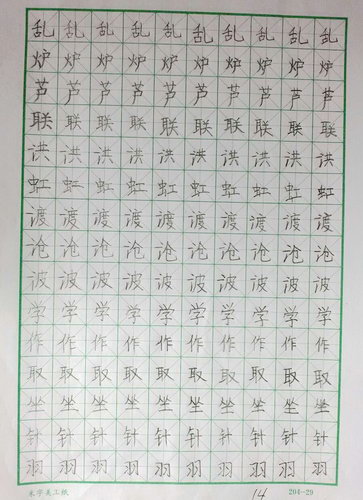 乱乱乱乱乱乱乱乱乱乱
炉炉炉炉炉炉炉炉炉炉
芦芦芦芦芦芦芦芦芦芦
联联联联联联联联联联
洪洪洪洪洪洪洪洪洪洪
虹虹虹虹虹虹虹虹虹虹
渡渡渡渡渡渡渡渡渡渡
沧沧沧沧沧沧沧沧沧沧
波波波波波波波波波波
学学学学学学学学学学
作作作作作作作作作作
取取取取取取取取取取
坐坐坐坐坐坐坐坐坐坐
针针针针针针针针针针
羽羽羽羽羽羽羽羽羽羽
米字美工纸 14 294-29